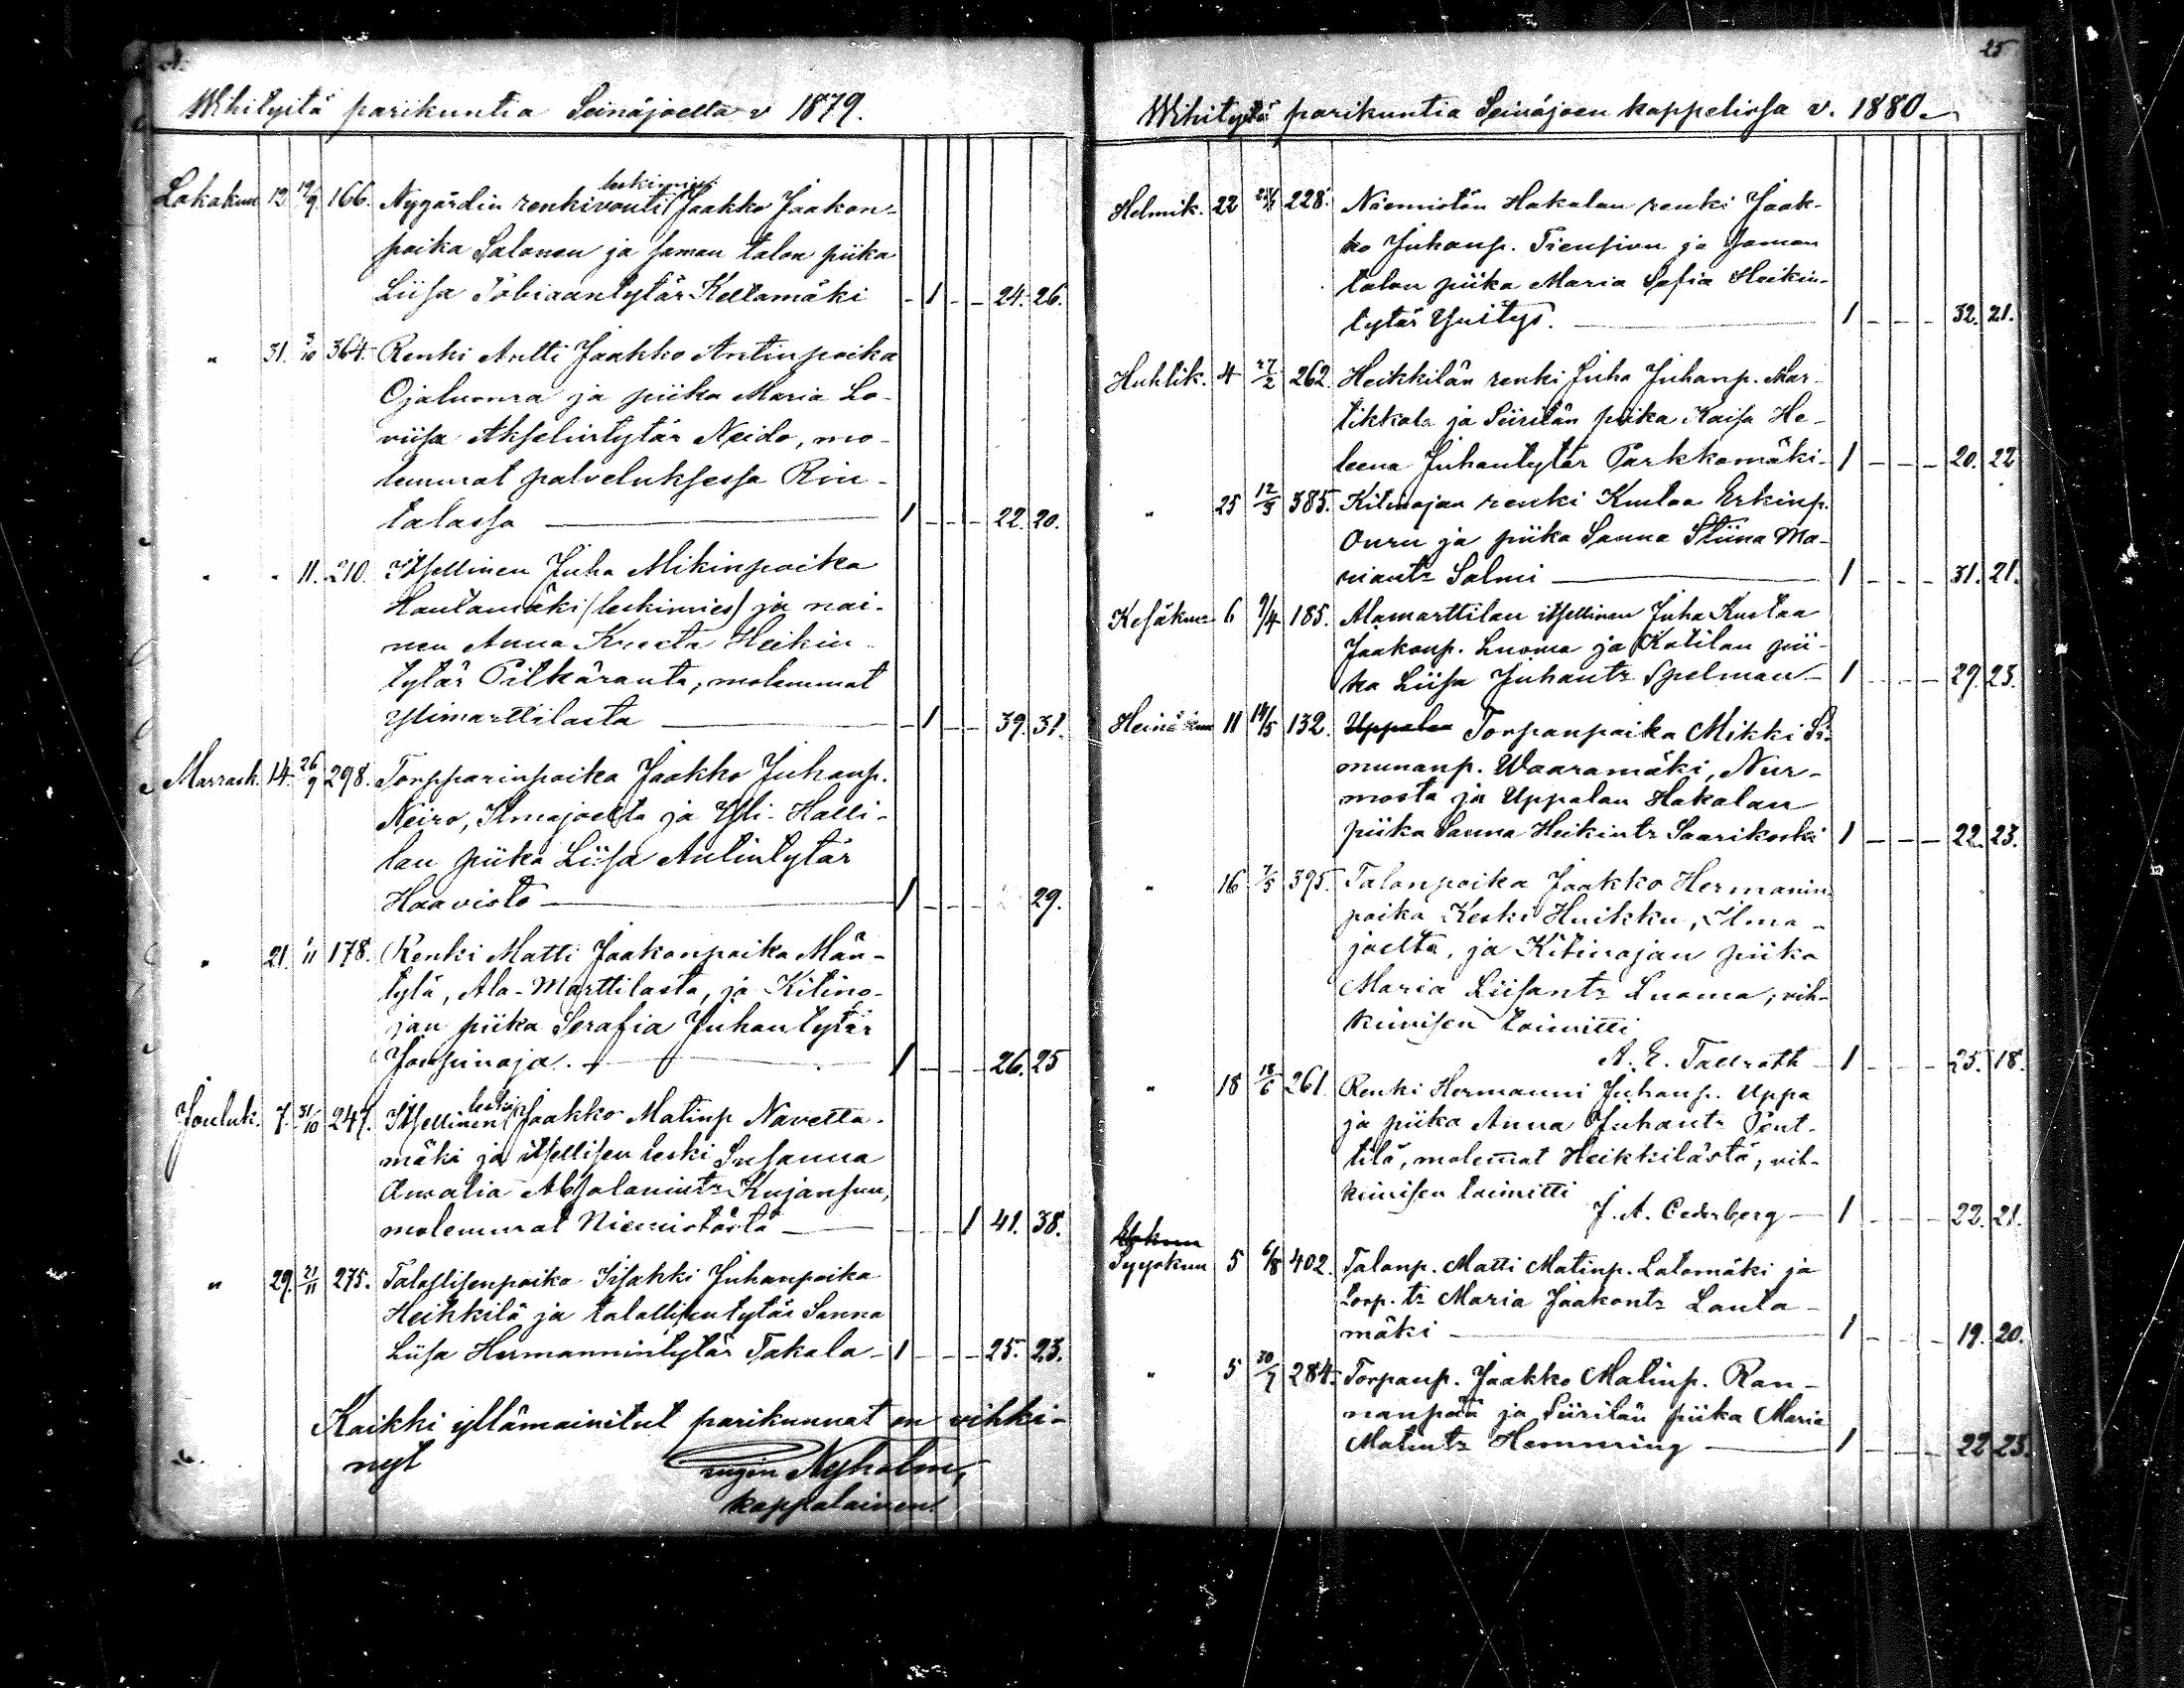 Wihityitä parikuntia Seinäjoella v 1879.
Lokakuu 12 19/9. 166. Nygårdin renkivouti leskimies Jaakko Jaakon-
poika Salonen ja saman talon piika
Liisa Tobiaantytär Keltamäki - 1 - - 24. 26.
" 31. 5/10 364. Renki Antti Jaakko Antinpoika
Ojaluoma ja piika Maria Lo-
viisa Akselintytär Neido, mo-
lemmat palveluksessa Rin-
talassa 1 - - - 22. 20.
" " 11. 210. Itsellinen Juha Mikinpoika
Hautamäki (leskimies) ja nai-
nen Anna Kreeta Heikin-
tytär Pitkäranta, molemmat
Ylimarttilasta - 1 - - 39. 31.
Marrask. 14. 26/9 298. Torpparinpoika Jaakko Juhanp.
Neiro, Ilmajoelta ja Yli-Halli-
lan piika Liisa Antintytär
Haavisto 1 - - - 29.
" 21. 11 178. Renki Matti Jaakonpoika Män-
tylä, Ala-Marttilasta, ja Kitino-
jan piika Serafia Juhantytär
Jouppinoja. 1 - - - 26. 25
Jouluk. 7. 31/10 247. Itsellinen leski Jaakko Matinp Navetta-
mäki ja itsellisen leski Susanna
Amalia Absalomintr Kujansuu,
molemmat Niemistöstä - - - 1 41. 38.
" 29. 21/11 275. Talollisenpoika Iisakki Juhanpoika
Heikkilä ja talollisentytär Sanna
Liisa Hermannintytär Takala 1 - - - 25. 23.
Kaikki yllämainitut parikunnat on vihki-
nyt
Nyholm,
kappalainen.
25
Wihityitä parikuntia Seinäjoen kappelissa v. 1880.
Helmik. 22 228. Niemistön Hakalan renki Jaak-
ko Juhanp. Tiensivu ja saman
talon piika Maria Sofia Heikin-
tytär Yritys. 1 - - - 32. 21.
Huhtik. 4 27/2 262. Heikkilän renki Juha Juhanp. Mar-
tikkala ja Siirilän piika Kaisa He-
leena Juhantytär Parkkamäki- 1 - - - 20. 22
" 25 12/3 385. Kitinojan renki Kustaa Erkinp.
Ouru ja piika Sanna Stiina Ma-
riantr Salmi 1 - - - 31. 21.
Kesäkuu 6 9/4 185. Alamarttilan itsellinen Juha Kustaa
Jaakonp. Luoma ja Katilan pii-
ka Liisa Juhantr Spelman 1 - - - 29. 23.
Heinäkuu 11 14/5 132. Uppalan Torpanpoika Mikki Si-
munanp. Waaramäki, Nur-
mosta ja Uppalan Hakalan
piika Sanna Heikintr Saarikoski 1 - - - 22. 23.
" 16 7/5 395. Talonpoika Jaakko Hermanin
poika Keski Huikku, Ilma-
joelta, ja Kitinojan piika
Maria Liisantr Luoma; vih-
kimisen toimitti
A. E. Tallroth 1 - - - 25. 18.
" 18 18/6 261. Renki Hermanni Juhanp. Uppa
ja piika Anna Juhantr Pent-
tilä, molemat Heikkilästä, vih-
kimisen toimitti
J. A. Cederberg 1 - - - 22. 21.
Elokuu
Syyskuu 5 6/8 402. Talonp. Matti Matinp. Latomäki ja
torp. tr Maria Jaakontr Lauta-
mäki 1 - - - 19. 20.
" 5 30/7 284. Torpanp. Jaakko Matinp. Ran-
nanpää ja Siirilän piika Maria
Matintr Hemming 1 - - - 22 23.